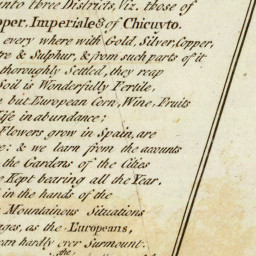 into three Districts, Viz. those of
oper, Imperiale, & of Chicuyto.
every where with Gold, Silver, Copper,
tre & Sulphur, & from such parts of it
thoroughly Settled, they reap
Soil is Wonderfully Fertile,
but European Corn, Wine, Fruits
Life in abundance;
Flowers grow in Spain, are
e; & we learn from the accounts
the Gardens of the Cities
e Kept bearing all the Year.
in the hands of the
Mountainous Situations
ages, as the Europeans,
can hardly ever Surmount.
the